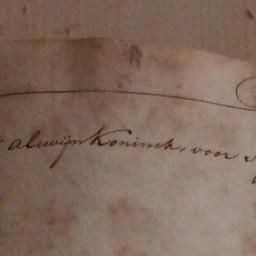 Alewijn Koninck, voor